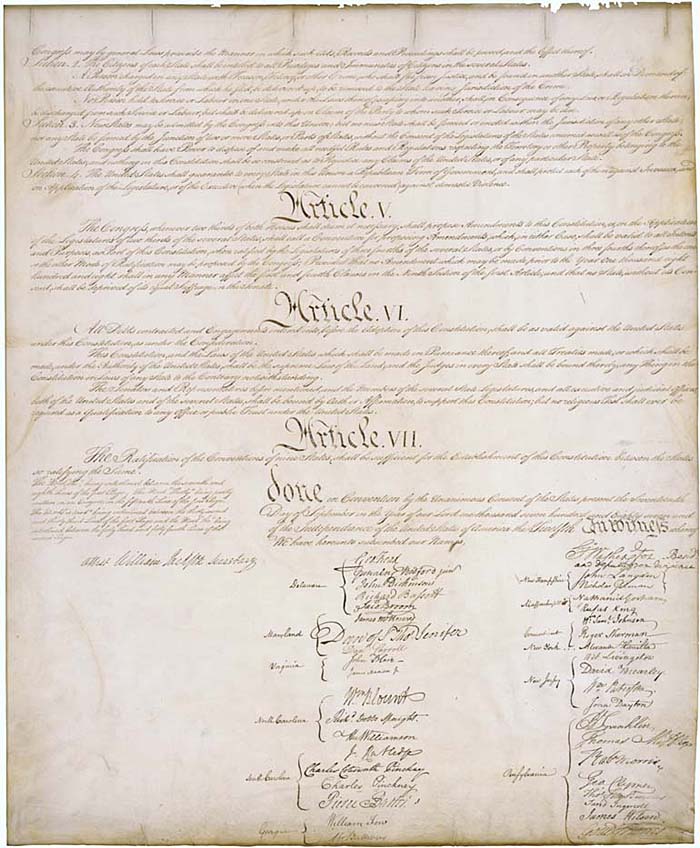 Congress may by general Laws prescribe the Manner in which such Acts, Records and Proceedings shall be proved, and the Effect thereof.
Section. 2. The Citizens of each State shall be entitled to all Privileges and Immunities of Citizens in the several States.
A Person charged in any State with Treason, Felony, or other Crime, who shall flee from Justice, and be found in another State, shall on Demand of
the executive Authority of the State from which he fled, be delivered up, to be removed to the State having Jurisdiction of the Crime.
No Person held to Service or Labour in one State, under the Laws thereof, escaping into another, shall, in Consequence of any Law or Regulation therein,
be discharged from such Service or Labour, but shall be delivered up on Claim of the Party to whom such Service or Labour may be due.
Section. 3. New States may be admitted by the Congress into this Union; but no new State shall be formed or erected within the Jurisdiction of any other State;
nor any State be formed by the Junction of two or more States, or Parts of States, without the Consent of the Legislatures of the States concerned as well as of the Congress.
The Congress shall have Power to dispose of and make all needful Rules and Regulations respecting the Territory or other Property belonging to the
United States; and nothing in this Constitution shall be so construed as to Prejudice any Claims of the United States, or of any particular State.
Section. 4. The United States shall guarantee to every State in this Union a Republican Form of Government, and shall protect each of them against Invasion; and
on Application of the Legislature, or of the Executive (when the Legislature cannot be convened) against domestic Violence.
Article. V.
The Congress, whenever two thirds of both Houses shall deem it necessary, shall propose Amendments to this Constitution, or, on the Application
of the Legislatures of two thirds of the several States, shall call a Convention for proposing Amendments, which, in either Case, shall be valid to all Intents
and Purposes, as Part of this Constitution, when ratified by the Legislatures of three fourths of the several States, or by Conventions in three fourths thereof, as the one
or the other Mode of Ratification may be proposed by the Congress; Provided that no Amendment which may be made prior to the Year One thousand eight
hundred and eight shall in any Manner affect the first and fourth Clauses in the Ninth Section of the first Article; and that no State, without its Con-
sent, shall be deprived of its equal Suffrage in the Senate.
Article. VI.
All Debts contracted and Engagements entered into, before the Adoption of this Constitution, shall be as valid against the United States
under this Constitution, as under the Confederation.
This Constitution, and the Laws of the United States which shall be made in Pursuance thereof; and all Treaties made, or which shall be
made, under the Authority of the United States, shall be the supreme Law of the Land; and the Judges in every State shall be bound thereby, any Thing in the
Constitution or Laws of any State to the Contrary notwithstanding.
The Senators and Representatives before mentioned, and the Members of the several State Legislatures, and all executive and judicial Officers,
both of the United States and of the several States, shall be bound by Oath or Affirmation, to support this Constitution; but no religious Test shall ever be
required as a Qualification to any Office or public Trust under the United States.
Article. VII.
The Ratification of the Conventions of nine States, shall be sufficient for the Establishment of this Constitution between the States
so ratifying the Same.
done in Convention by the Unanimous Consent of the States present the Seventeenth
Day of September in the Year of our Lord one thousand seven hundred and Eighty seven and
of the Independance of the United States of America the Twelfth In witness whereof
We have hereunto subscribed our Names,
attest William Jackson Secretary
Delaware
Geo: Read
Gunning Bedford jun
John Dickinson
Richard Bassett
Jaco: Broom
Maryland
James McHenry
Dan of St Thos. Jenifer
Danl Carroll
Virginia
John Blair
James Madison Jr.
North Carolina
Wm Blount
Richd. Dobbs Spaight.
Hu Williamson
South Carolina
J. Rutledge
Charles Cotesworth Pinckney
Charles Pinckney
Pierce Butler
Georgia
William Few
Abr Baldwin
Go: Washington Presidt
and deputy from Virginia
New Hampshire
John Langdon
Nicholas Gilman
Massachusetts
Nathaniel Gorham
Rufus King
Connecticut
Wm: Saml. Johnson
Roger Sherman
New York
Alexander Hamilton
New Jersey
Wil: Livingston
David Brearley
Wm Paterson
Jona: Dayton
Pensylvania
B Franklin
Thomas Mifflin
Robt Morris
Geo. Clymer
Thos. FitzSimons
Jared Ingersoll
James Wilson
Gouv Morris